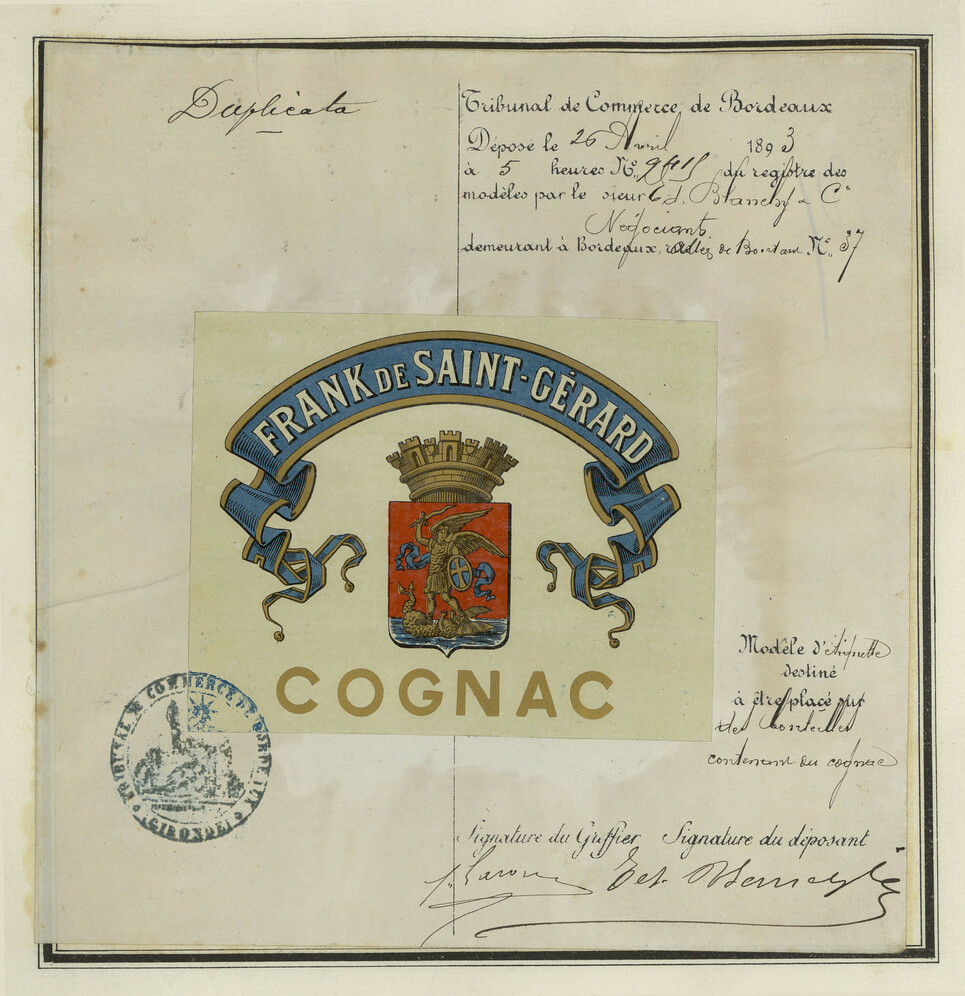 Duplicata
Tribunal de Commerce de Bordeaux
Déposé le 26 Avril 1893
à 5 heures Nº du registre des
modèles par le sieur Ed. Blanchy & Cie
Négociants
demeurant à Bordeaux, Nº 37
FRANK DE SAINT-GÉRARD
COGNAC
TRIBUNAL DE COMMERCE DE BORDEAUX
(GIRONDE)
Modèle d'étiquette
destiné
à être placé sur
des bouteilles
contenant du cognac
Signature du Greffier Signature du déposant